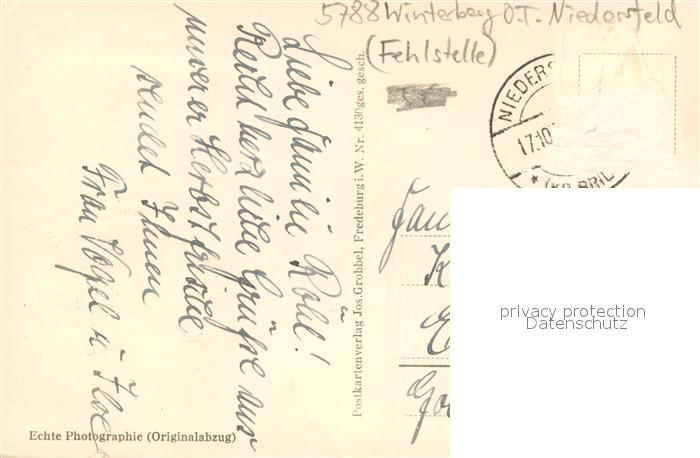 5788 Winterberg O.T. Niedersfeld
(Fehlstelle)
NIEDERS
17.10
* (KR. BRIL
Liebe Familie Röhl!
Recht herzliche Grüsse aus
unserer Herbstfrische
sendet Ihnen
Frau Vogel u. Ilse
Postkartenverlag Jos. Grobbel, Fredeburg i. W. Nr. 4130 ges. gesch.
Fam
K
Go
privacy protection
Datenschutz
Echte Photographie (Originalabzug)